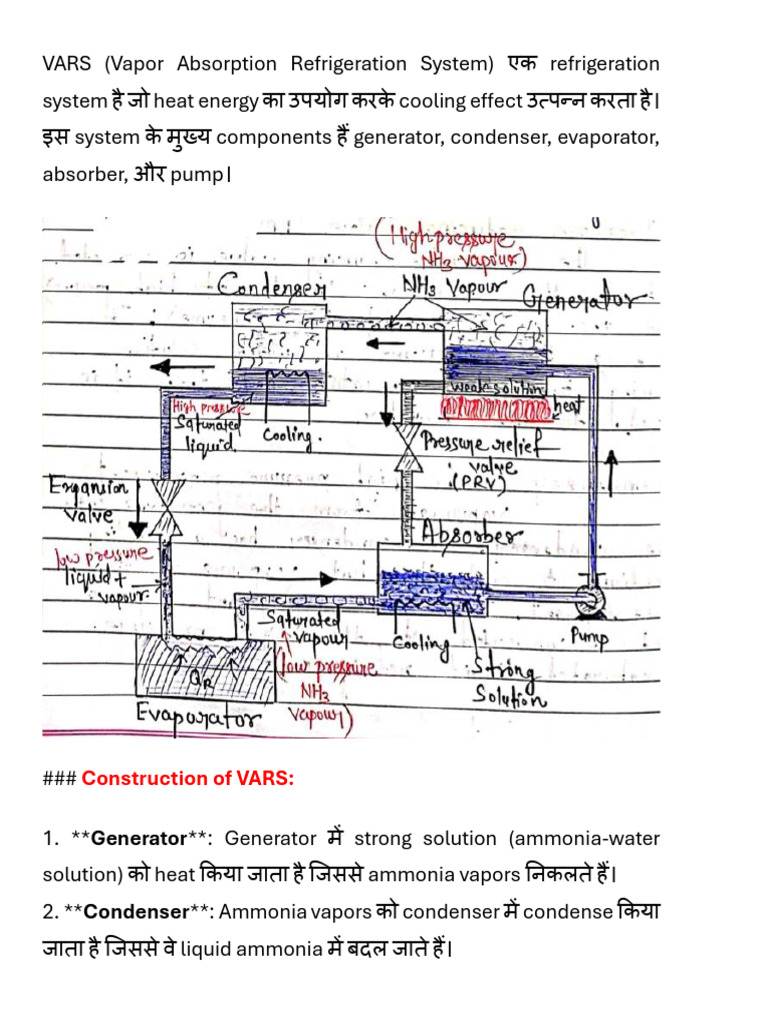 VARS (Vapor Absorption Refrigeration System) एक refrigeration
system है जो heat energy का उपयोग करके cooling effect उत्पन्न करता है।
इस system के मुख्य components हैं generator, condenser, evaporator,
absorber, और pump।
(High pressure
NH3 vapour)
Condenser
NH3 Vapour
Generator
weak solution
heat
High pressure
Saturated
liquid
Cooling.
Pressure relief
valve
(PRV)
Expansion
valve
Absorber
low pressure
liquid +
vapour
Saturated
vapour
Cooling
Pump
(low pressure
NH3
vapour)
Strong
Solution
QR
Evaporator
### Construction of VARS:
1. **Generator**: Generator में strong solution (ammonia-water
solution) को heat किया जाता है जिससे ammonia vapors निकलते हैं।
2. **Condenser**: Ammonia vapors को condenser में condense किया
जाता है जिससे वे liquid ammonia में बदल जाते हैं।